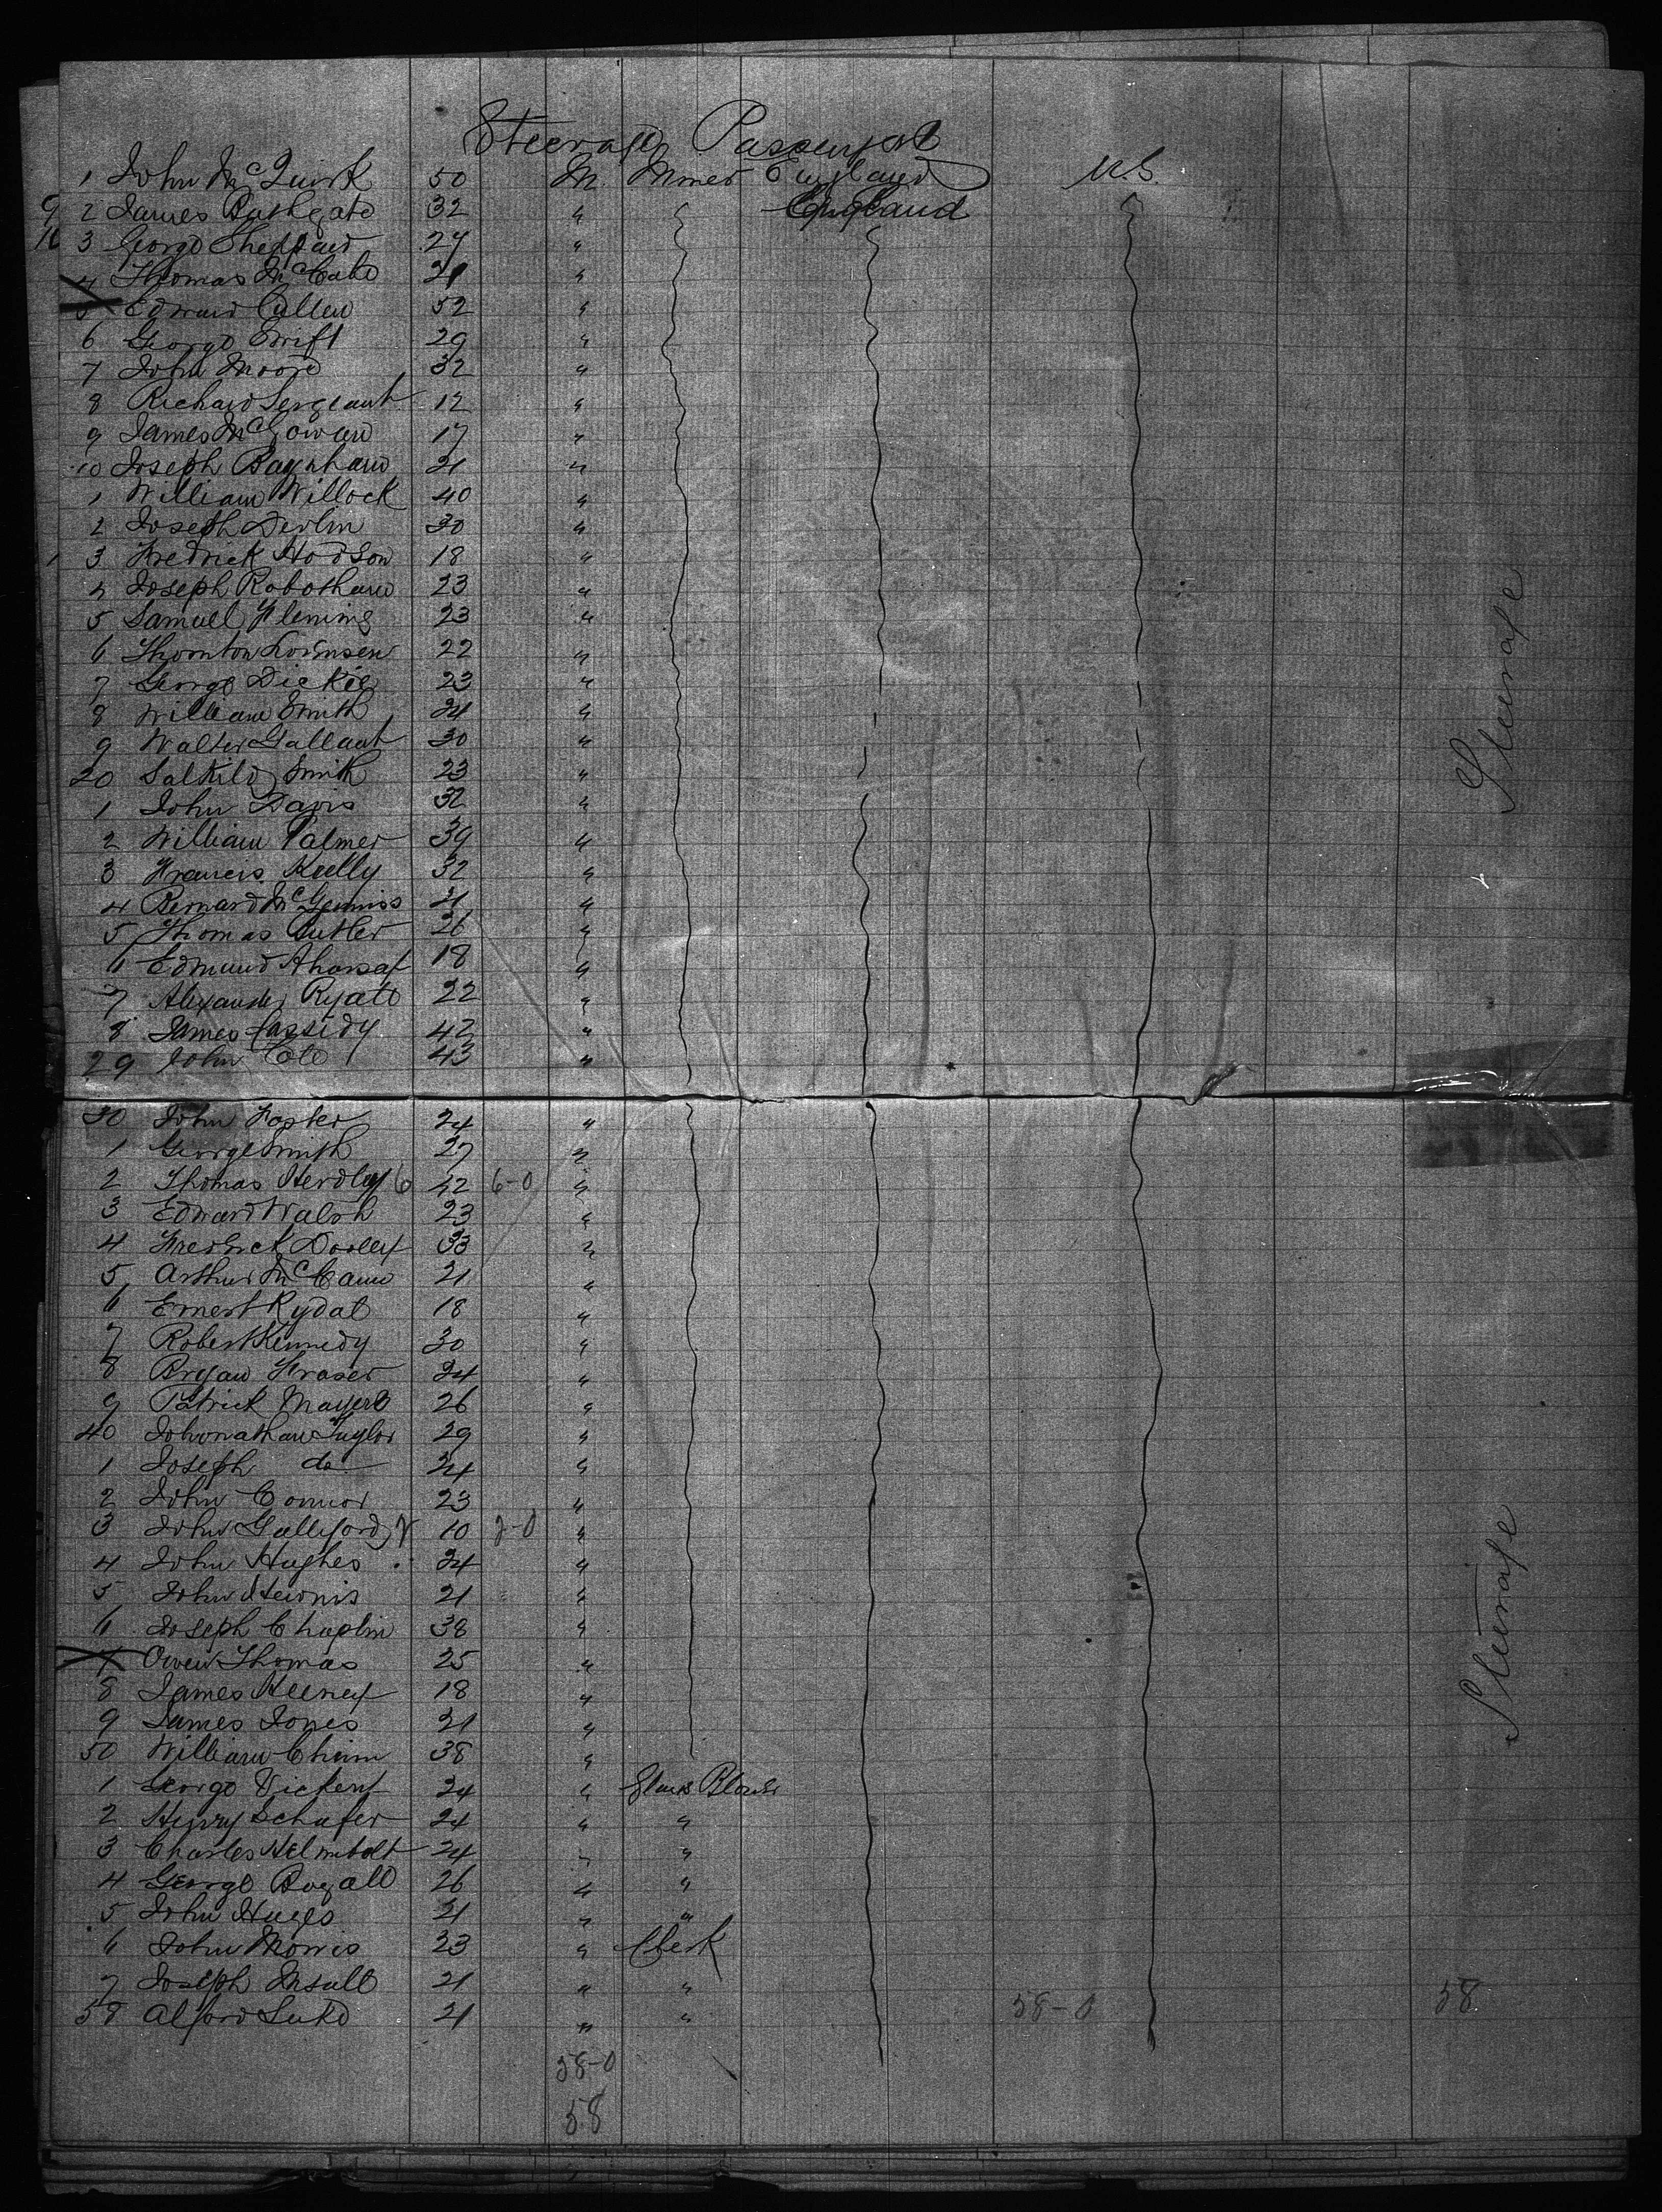 Steerage Passengers
1 John McQuirk 50 M. Miner England U.S.
9 2 James Bathgate 32 " England
16 3 George Sheppard 27 "
4 Thomas McCabe 21 "
5 Edward Cullen 52 "
6 George Swift 29 "
7 John Moore 32 "
8 Richard Sergeant 12 "
9 James McGowan 17 "
10 Joseph Baynham 21 "
1 William Willock 40 "
2 Joseph Devlin 30 "
1 3 Fredrick Hodson 18 "
4 Joseph Robotham 23 "
5 Samuel Fleming 23 "
6 Thornton 22 "
7 George Dickie 23 "
8 William Smith 24 "
9 Walter Gallant 30 "
20 Salkild Smith 23 "
1 John Davis 32 "
2 William Palmer 39 "
3 Francis Kelly 32 "
4 Bernard McGenniss 21 "
5 Thomas Butler 26 "
6 Edmund 18 "
7 Alexander Ryatt 22 "
8 James Cassidy 42 "
29 John Cole 43 "
30 John Foster 24 "
1 George Smith 27 "
2 Thomas Hendley 6 42 6-0 "
3 Edward Walsh 23 "
4 Fredrick Dooley 33 "
5 Arthur McCann 21 "
6 Ernest Rydal 18 "
7 Robert Kennedy 30 "
8 Bryan Fraser 24 "
9 Patrick Mayers 26 "
40 Johonathan Taylor 29 "
1 Joseph do 24 "
2 John Connor 23 "
3 John Galleford 10 2-0 "
4 John Hughes 24 "
5 John 21 "
6 Joseph Chaplin 38 "
7 Owen Thomas 25 "
8 James Keeney 18 "
9 James Jones 21 "
50 William 38 "
1 George Vickery 24 " Glass Blower
2 Henry Schafer 24 " "
3 Charles Helmbolt 24 " "
4 George 26 " "
5 John Huges 21 " "
6 John Morris 23 " Clerk
7 Joseph Insall 21 " "
58 Alford Luke 21 " " 58-0 58
58-0
58
Steerage
Steerage